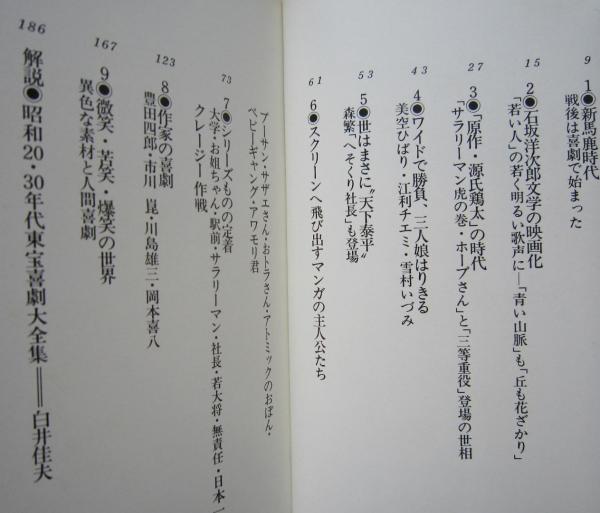 9
1●新馬鹿時代
戦後は喜劇で始まった
15
2●石坂洋次郎文学の映画化
「若い人」の若く明るい歌声に―「青い山脈」も「丘も花ざかり」
27
3●「原作・源氏鶏太」の時代
「サラリーマン虎の巻・ホープさん」と「三等重役」登場の世相
43
4●ワイドで勝負、三人娘はりきる
美空ひばり・江利チエミ・雪村いづみ
53
5●世はまさに“天下泰平”
森繁「へそくり社長」も登場
61
6●スクリーンへ飛び出すマンガの主人公たち
アーサン・サザエさん・おトラさん・アトミックのおぼん・
ベビーギャング・アワモリ君
73
7●シリーズものの定着
大学・お姐ちゃん・駅前・サラリーマン・社長・若大将・無責任・日本一
クレージー作戦
123
8●作家の喜劇
豊田四郎・市川 崑・川島雄三・岡本喜八
167
9●微笑・苦笑・爆笑の世界
異色な素材と人間喜劇
186
解説●昭和20・30年代東宝喜劇大全集――白井佳夫